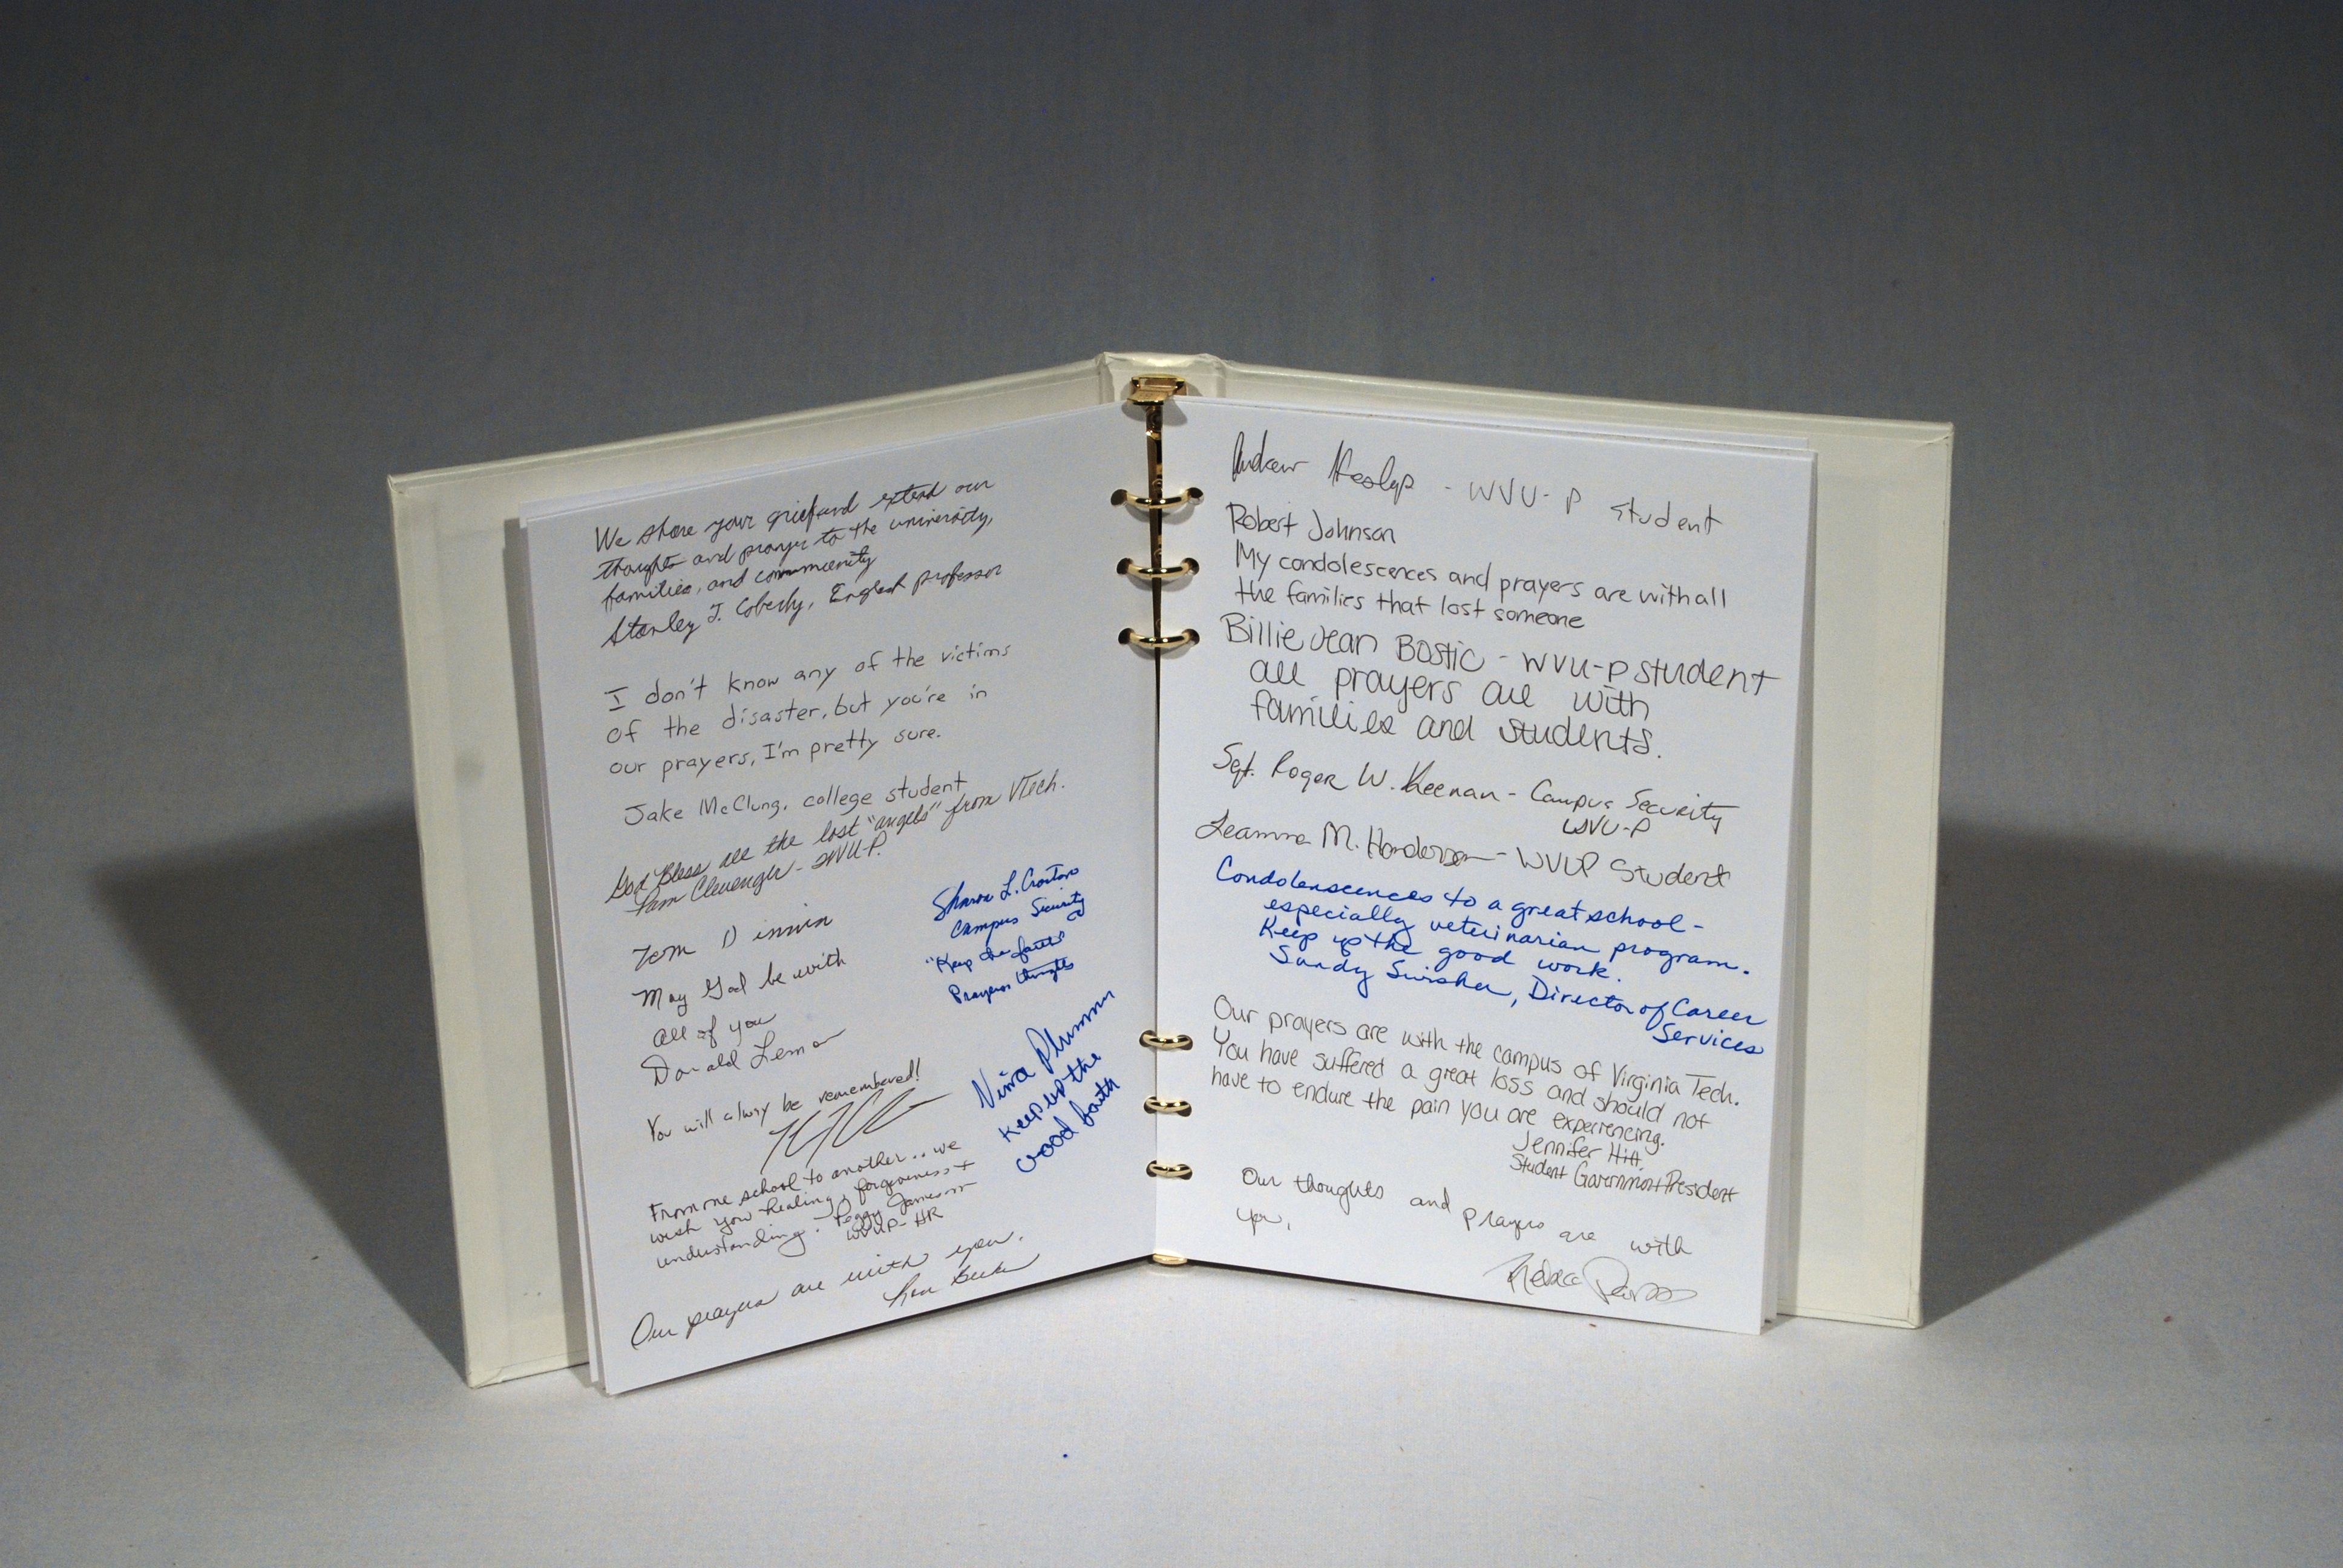 We share your grief and extend our
thoughts and prayer to the university,
families, and community
Stanley J. Coberly, English professor
I don't know any of the victims
of the disaster, but you're in
our prayers, I'm pretty sure.
Jake McClung, college student
God Bless all the lost "angels" from VTech.
Pam Clevenger - WVU-P.
Tom
May God be with
all of you
Donald Lemon
You will alway be remembered!
From one school to another.. we
wish you healing, forgiveness +
understanding. Peggy Jameson
WVUP-HR
Our prayers are with you.
Sharon L.
Campus Security
"Keep the faith"
Prayers thoughts
Nina Plummer
Keep up the
Good faith
Andrew Heslop - WVU-P student
Robert Johnson
My condolescences and prayers are with all
the families that lost someone
Billie Jean Bostic - WVU-P student
all prayers are with
families and students.
Sgt. Roger W. Keenan - Campus Security
WVU-P
Leanna M. Henderson - WVUP Student
Condolenscences to a great school -
especially veterinarian program.
Keep up the good work.
Sandy Swisher, Director of Career
Services
Our prayers are with the campus of Virginia Tech.
You have suffered a great loss and should not
have to endure the pain you are experiencing.
Jennifer Hitt.
Student Government President
Our thoughts and prayers are with
you.